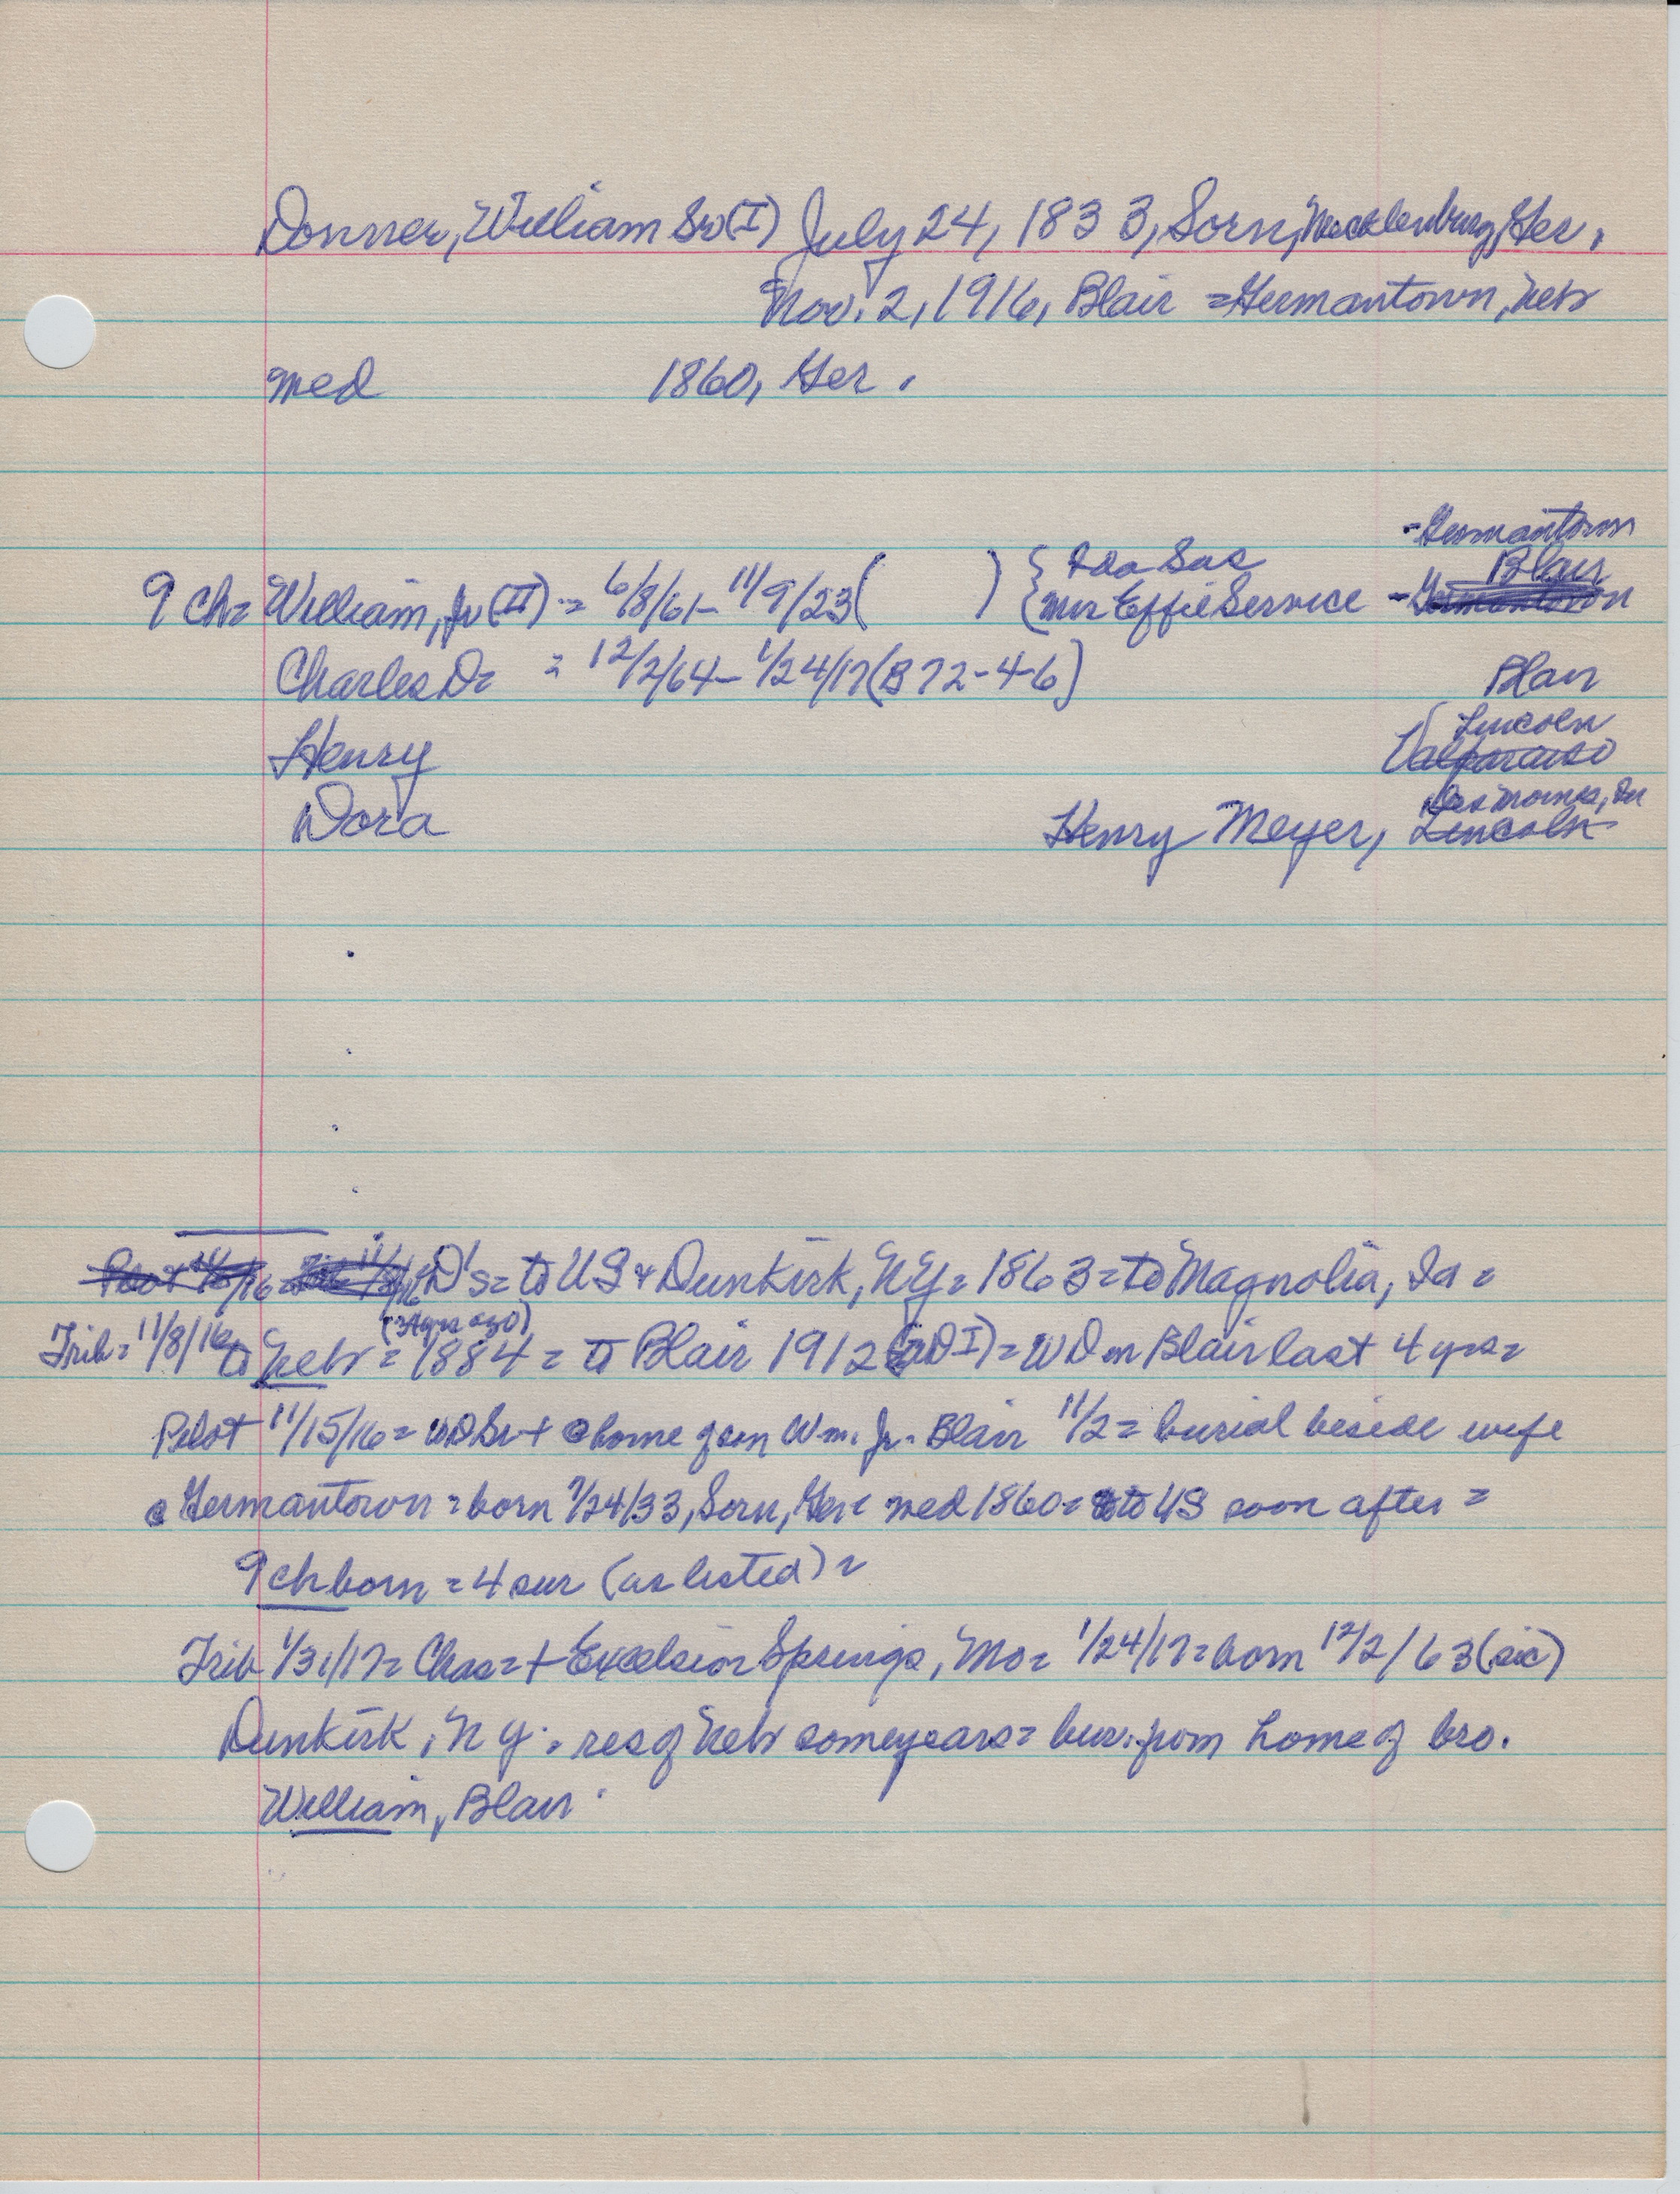 Donner, William Sr (I) July 24, 1833, Sorn, Mecklenburg, Ger.
Nov. 2, 1916, Blair = Germantown, Neb
med 1860, Ger.
- Germantown
{ Ida Sas Blair
9 Ch = William, Jr (II) = 6/8/61 - 11/9/23 ( ) { Mrs Effie Service - Germantown
Charles D = 12/2/64 - 1/24/17 (B 72-4-6) Blair
Lincoln
Henry Valparaiso
Des Moines, Ia
Dora Henry Meyer, Lincoln
D's = to US & Dunkirk, NY = 1863 = to Magnolia, Ia =
Trib = 11/8/16 to Neb = 1884 = to Blair 1912 (WD I) = WD in Blair last 4 yrs =
Pilot 11/15/16 = WD Sr + @ home of son Wm. Jr. Blair 11/2 = burial beside wife
@ Germantown = born 7/24/33, Sorn, Ger = med 1860 = to US soon after =
9 ch born = 4 sur (as listed) =
Trib 1/31/17 = Chas = + Excelsior Springs, Mo = 1/24/17 = born 12/2/63 (sic)
Dunkirk, N Y. = res of Neb some years = bur. from home of bro.
William, Blair